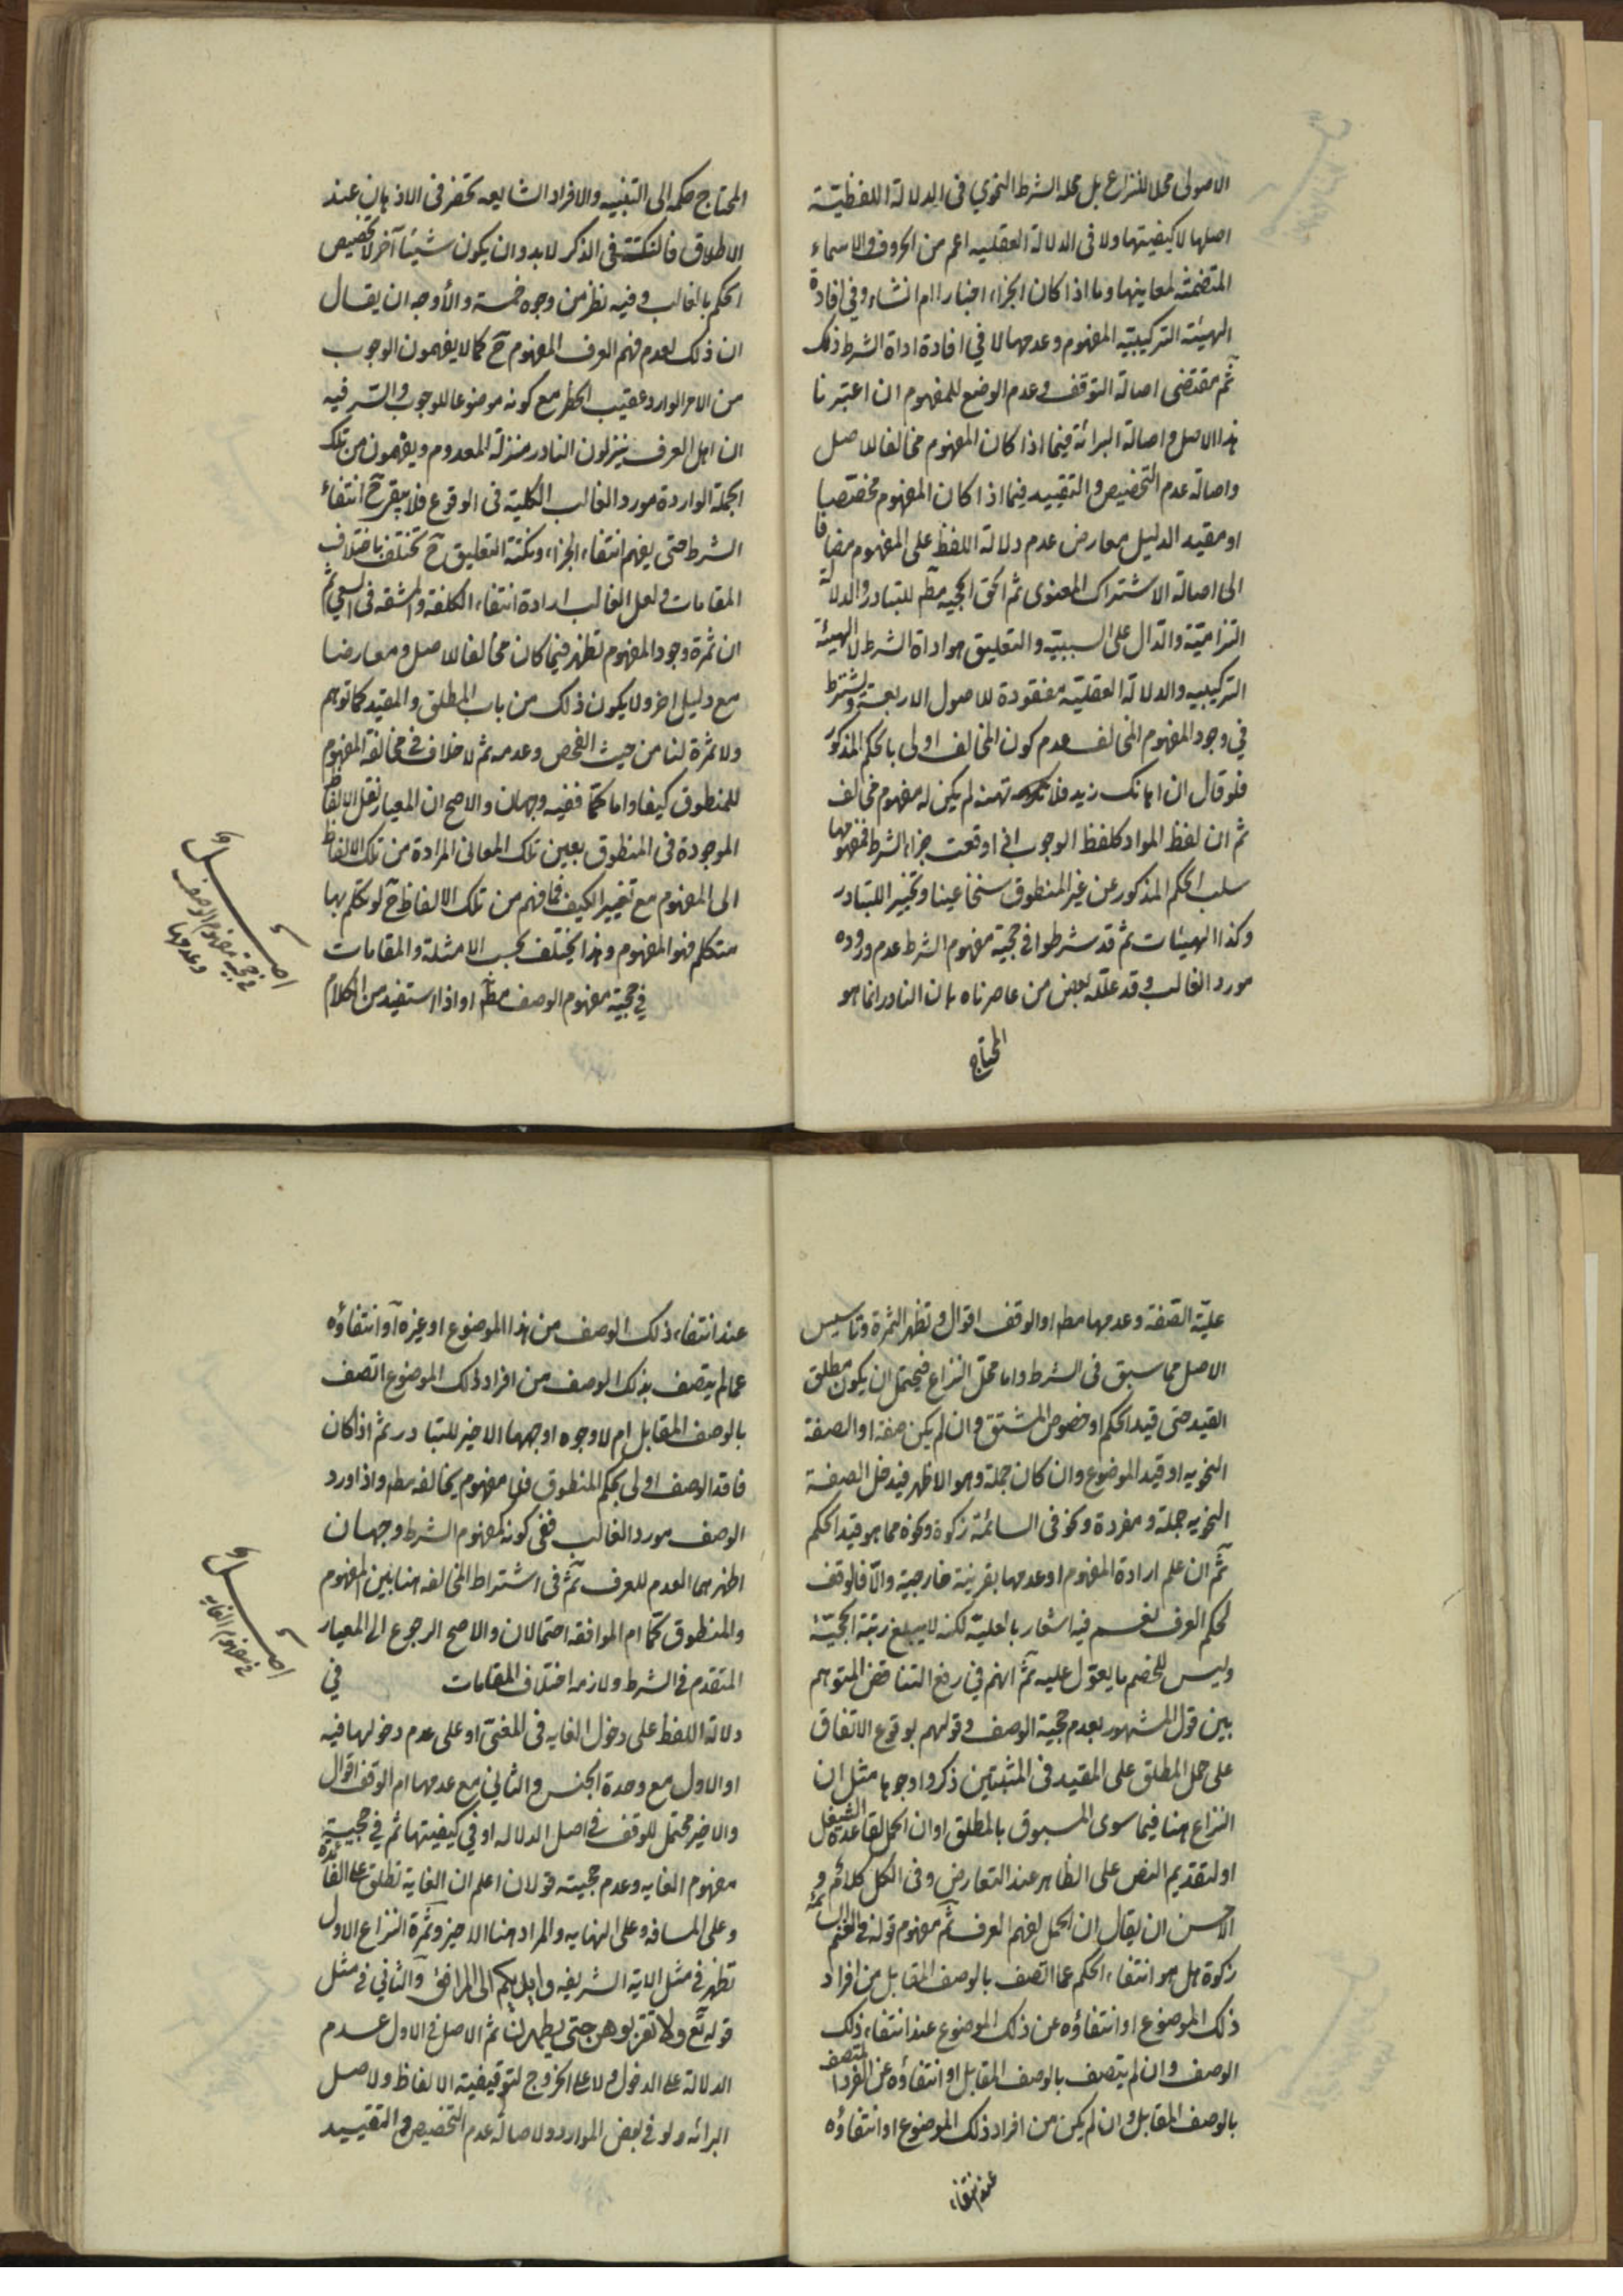 الاصولى محلا للنزاع بل محله الشرط النحوي فى الدلالة اللفظيّة
اصلها لا كيفيتها ولا فى الدلالة العقليه اعم من الحروف والاسماء
المتضمنة لمعاينها وما اذا كان الجزاء اخبارا ام انشاء وفي افادة
الهيئة التركيبيّه المفهوم وعدمها لا في افادة اداة الشرط ذلك
ثمّ مقتضى اصالة التوقف وعدم الوضع للمفهوم ان اعتبرنا
هذا الاصل واصالة البرائة فيما اذا كان المفهوم مخالفا للاصل
واصالة عدم التخصيص والتقييد فيما اذا كان المفهوم مخصّصا
او مقيد الدليل معارض عدم دلالة اللفظ على المفهوم مضافا
الى اصالة الاشتراك المعنوى ثم الحق الحجيه مطم للتبادر والدلالة
التزاميّة والدّال على السببيّه والتعليق هو اداة الشرط لا الهيئة
التركيبيه والدلالة العقليّة مفقودة للاصول الاربعة ويشترط
في وجود المفهوم المخالف عدم كون المخالف اولى بالحكم المذكور
فلو قال ان اهانك زيد فلا تهنه لم يكن له مفهوم مخالف
ثم ان لفظ المواد كلفظ الوجوب اذا وقعت جزاء الشرط فمفهومها
سلب الحكم المذكور عن غير المنطوق سنخا عينا وتخيير اللتبادر
وكذا الهيئات ثم قد شرطوا في حجية مفهوم الشرط عدم وروده
مورد الغالب وقد علله بعض من عاصرناه بان النادر انما هو
المحتاج
المحتاج حكمه الى التنبيه والافراد الشايعه تحضر فى الاذهان عند
الاطلاق فالنكتة فى الذكر لابد وان يكون شيئا آخر لا تخصيص
الحكم بالغالب وفيه نظر من وجوه خمسة والأوجه ان يقال
ان ذلك لعدم فهم العرف المفهوم ح كما لا يفهمون الوجوب
من الامر الوارد عقيب الحظر مع كونه موضوعا للوجوب والسّر فيه
ان اهل العرف ينزلون النادر منزلة المعدوم ويفهمون من تلك
الجملة الواردة مورد الغالب الكلية فى الوقوع فلا يتقرر ح انتفاء
الشرط حتى يفهم انتفاء الجزاء ونكتة التعليق ح تختلف باختلاف
المقامات ولعل الغالب ارادة انتفاء الكلفة والمشقه فى السعي ثم
ان ثمرة وجود المفهوم تظهر فيما كان مخالفا للاصل ومعارضا
مع دليل اخر ولا يكون ذلك من باب المطلق والمقيد كما توهم
ولا ثمرة لنا من حيث الفحص وعدمه ثم لا خلاف في مخالفة المفهوم
للمنطوق كيفا واما كمّا ففيه وجهان والاصح ان المعيار نقل الالفاظ
الموجودة فى المنطوق بعين تلك المعانى المرادة من تلك الالفاظ
الى المفهوم مع تغيير الكيف فما فهم من تلك الالفاظ ح لو تكلم بها
متكلم فهو المفهوم وهذا يختلف بحسب الامثلة والمقامات
في حجية مفهوم الوصف مطم او اذا استفيد من الكلام
اصــل
في حجية مفهوم الوصف
وعدمها
عليّة الصّفة وعدمها مطم او الوقف اقوال وتظهر الثمرة وتاسيس
الاصل مما سبق فى الشرط واما محلّ النزاع فيحتمل ان يكون مطلق
القيد حتى قيد الحكم او خصوص المشتق وان لم يكن صفة او الصفة
النحويه او قيد الموضوع وان كان جملة وهو الاظهر فيدخل الصفة
النحويه جملة ومفردة ونحو فى السائمة زكوة ونحوه مما هو قيد الحكم
ثمّ ان علم ارادة المفهوم او عدمها بقرينة خارجيّة والّا فالوقف
لحكم العرف نعم فيه اشعار بالعليّه لكنه لا يبلغ رتبة الحجيّة
وليس للخصم ما يعوّل عليه ثمّ انهم في رفع التناقض المتوهم
بين قول المشهور بعدم حجية الوصف وقولهم بوقوع الاتفاق
على حمل المطلق على المقيد فى المثبتين ذكروا وجوها مثل ان
النزاع هنا فيما سوى المسبوق بالمطلق او ان الحمل لقاعدة الشغل
او لتقديم النص على الظاهر عند التعارض وفى الكل كلام و
الاحسن ان يقال ان الحمل لفهم العرف ثمّ مفهوم قوله في الغنم السائمة
زكوة هل هو انتفاء الحكم عما اتصف بالوصف المقابل من افراد
ذلك الموضوع او انتفاؤه عن ذلك الموضوع عند انتفاء ذلك
الوصف وان لم يتصف بالوصف المقابل او انتفاؤه عن الفرد المتصف
بالوصف المقابل وان لم يكن من افراد ذلك الموضوع او انتفاؤه
عند انتفاء
عند انتفاء ذلك الوصف من هذا الموضوع او غيره او انتفاؤه
عما لم يتصف بذلك الوصف من افراد ذلك الموضوع اتصف
بالوصف المقابل ام لا وجوه اوجهها الاخير للتبادر ثم اذا كان
فاقد الوصف اولى بحكم المنطوق فلا مفهوم يخالفه مطم واذا ورد
الوصف مورد الغالب ففى كونه كمفهوم الشرط وجهان
اظهرهما العدم للعرف ثمّ فى اشتراط المخالفه هنا بين المفهوم
والمنطوق كمّا ام الموافقه احتمالان والاصح الرجوع الى المعيار
المتقدم فى الشرط ولازمه اختلاف المقامات في
اصــل
في مفهوم الغايه
دلالة اللفظ على دخول الغايه فى المغيّى او على عدم دخولها فيه
او الاول مع وحدة الجنس والثاني مع عدمها ام الوقف اقوال
والاخير محتمل للوقف في اصل الدلاله او في كيفيتها ثم في حجية
مفهوم الغايه وعدم حجيته قولان اعلم ان الغاية تطلق على الفائدة
وعلى المسافه وعلى النهايه والمراد هنا الاخير وثمرة النزاع الاول
تظهر في مثل الاية الشريفه وايديكم الى المرافق والثاني في مثل
قوله تع ولا تقربوهن حتى يطهرن ثم الاصل في الاول عدم
الدلالة على الدخول ولا على الخروج لتوقيفية الالفاظ ولاصل
البرائه ولو في بعض الموارد ولاصالة عدم التخصيص والتقييد